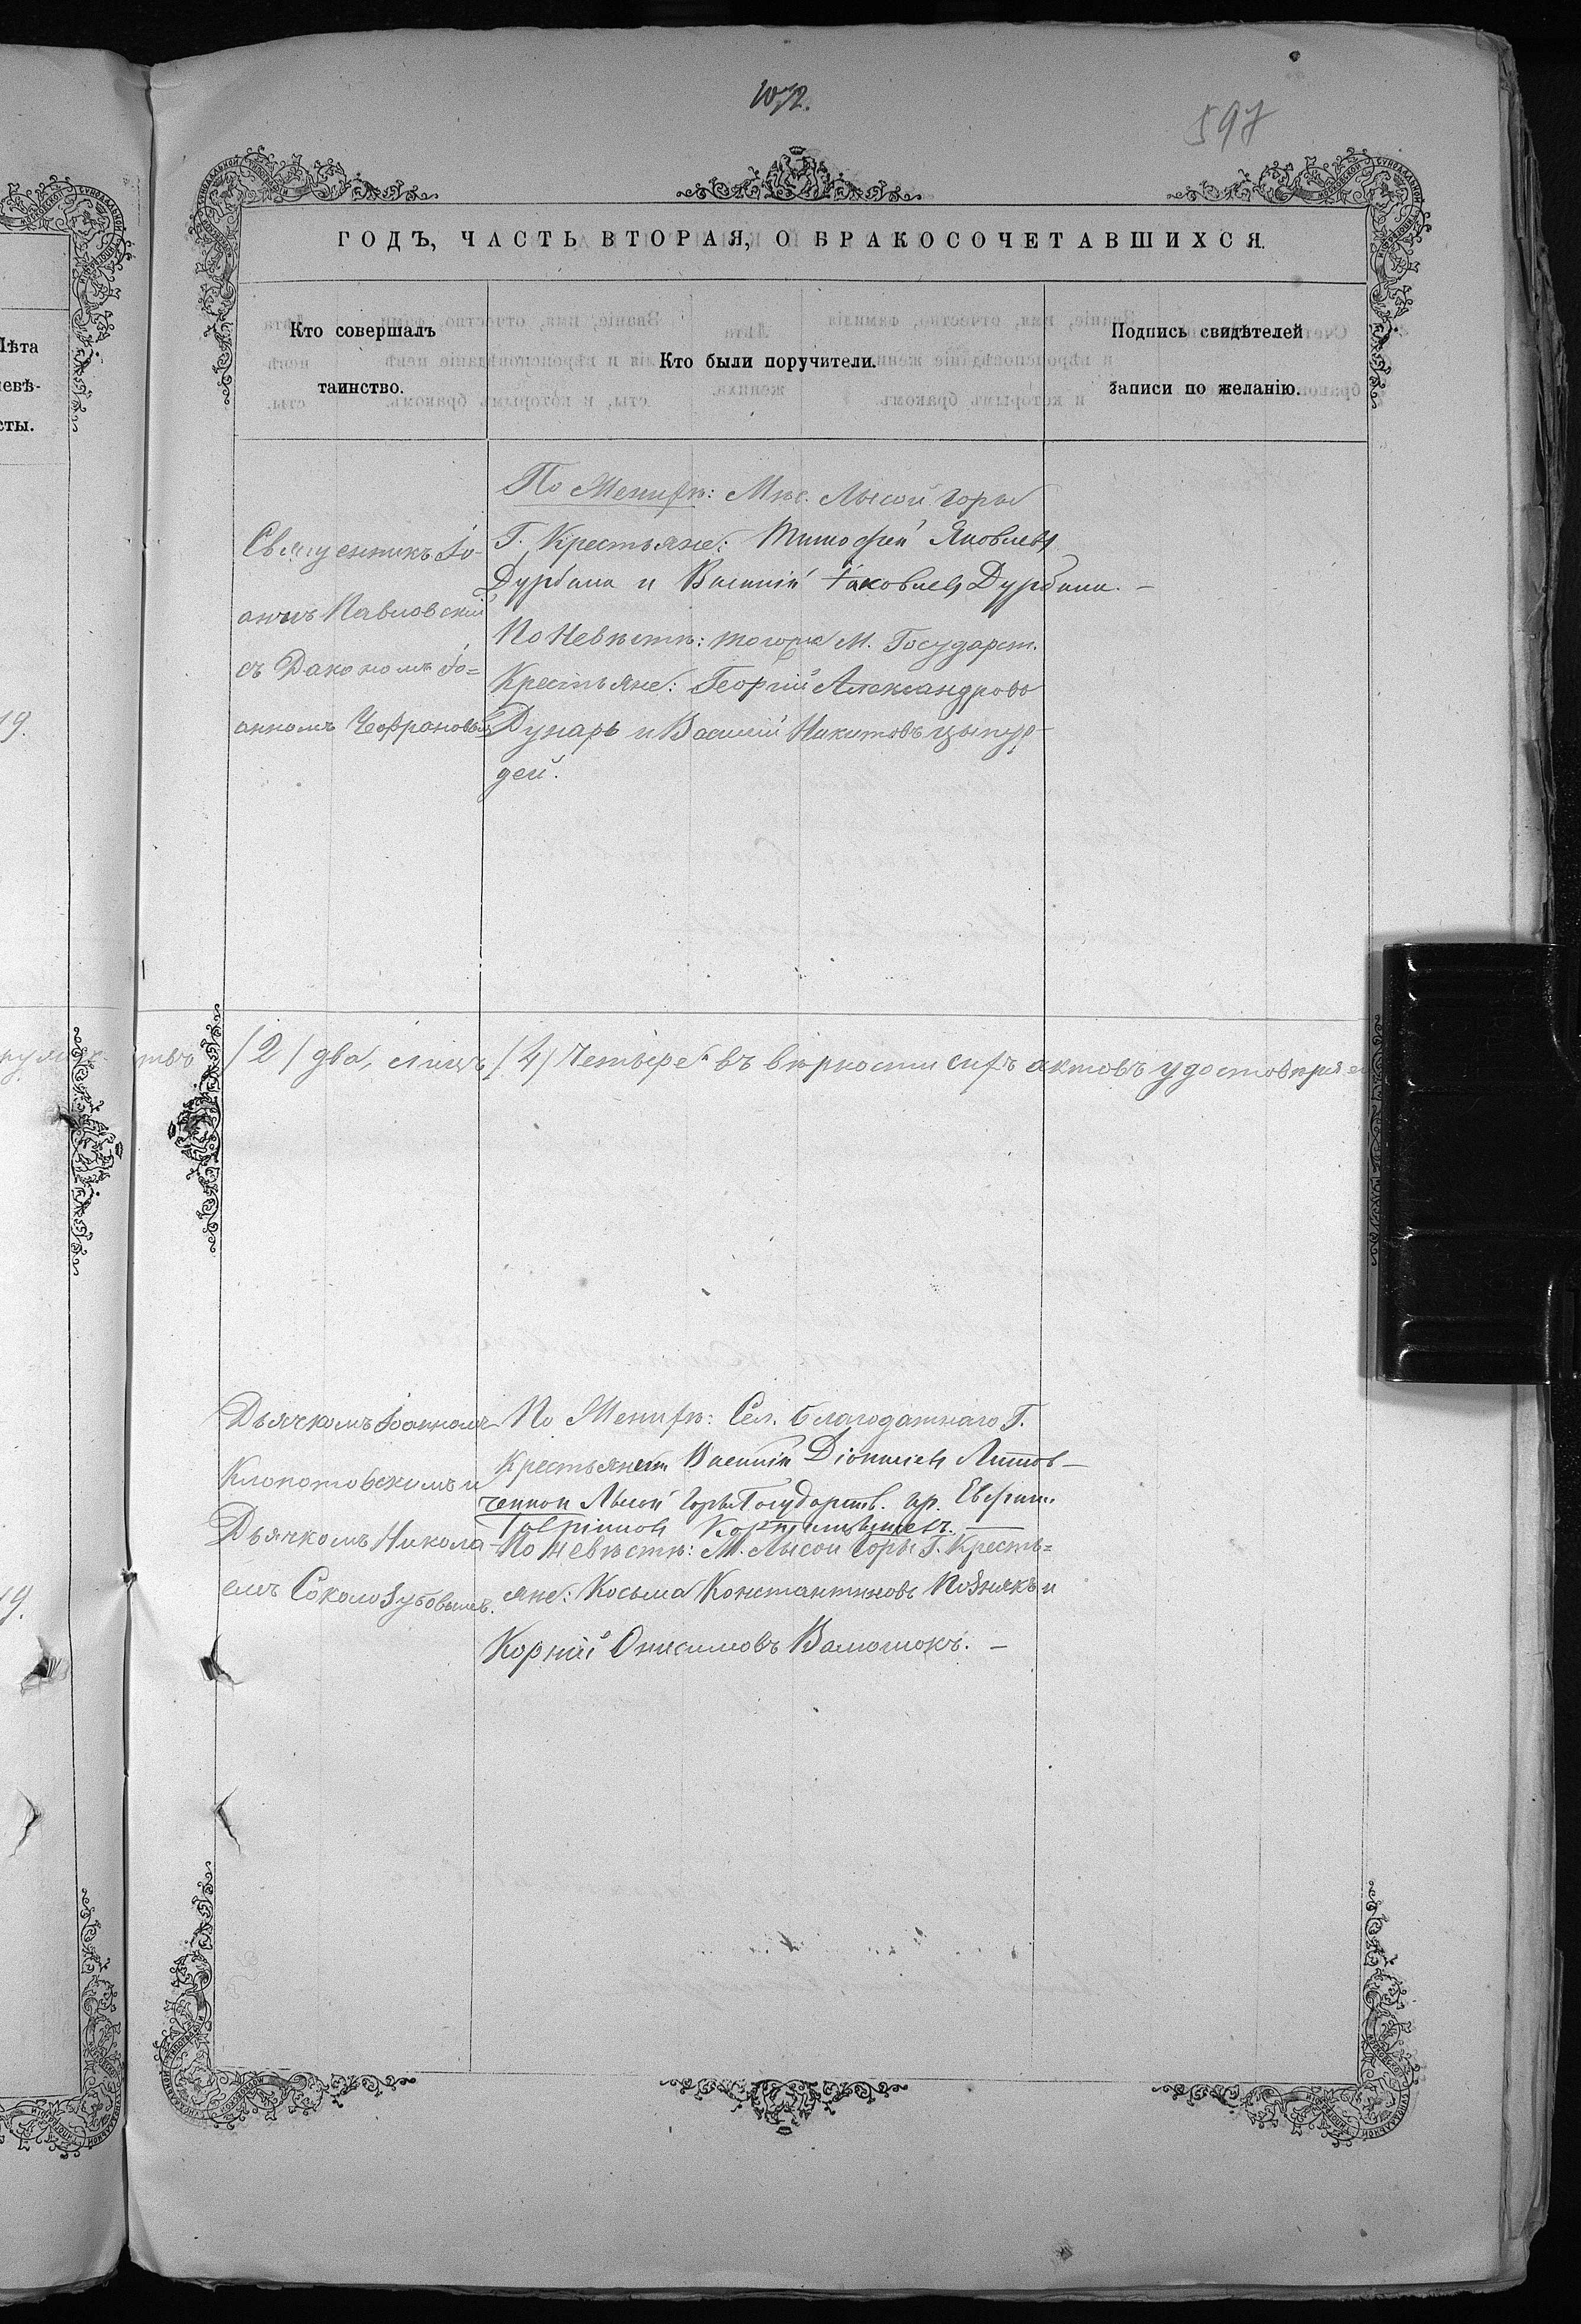 1072.
597
ГОДЪ, ЧАСТЬ ВТОРАЯ, О БРАКОСОЧЕТАВШИХСЯ.
Лѣта
невѣ-
сты.
Кто совершалъ
таинство.
Кто были поручители.
Подпись свидѣтелей
записи по желанію.
19.
Священникъ Іо-
аннъ Павловскій
съ Діакономъ Іо=
анномъ
По Женихѣ: Мѣс. Лысой Горы
Г. Крестьяне: Тимофей Яковлевъ
Дурбала и Василій Іаковлевъ Дурбала. –
По Невѣстѣ: тогоже М. Государст.
Крестьяне: Георгій Александровъ
Дунарь и Василій Никитовъ Цыпур-
дей.
/2/ два, лицъ /4/ Четыре въ вѣрности сихъ актовъ удостовѣряемъ
19.
Дьячкомъ Іоанномъ
Клопотовскимъ и
Дьячкомъ Никола-
емъ Соколозубовымъ.
По Женихѣ: Сел. Благодатнаго Г.
Крестьянинъ Василій Діонисіевъ Литов-
ченко и Лысой Горы Государств. кр.
По невѣстѣ: М. Лысой Горы Г. Кресть=
яне: Косьма Константиновъ Познякъ и
Корній Онисимовъ Валошокъ. –